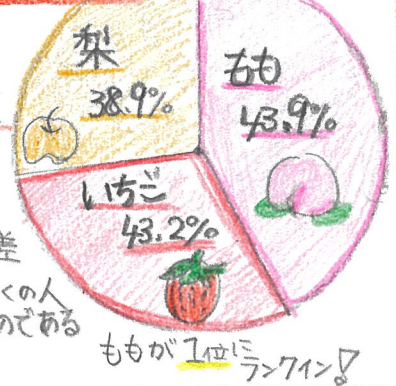 梨
38.9%
もも
43.9%
いちご
43.2%
差
くの人
のである
ももが1位に
ランクイン!